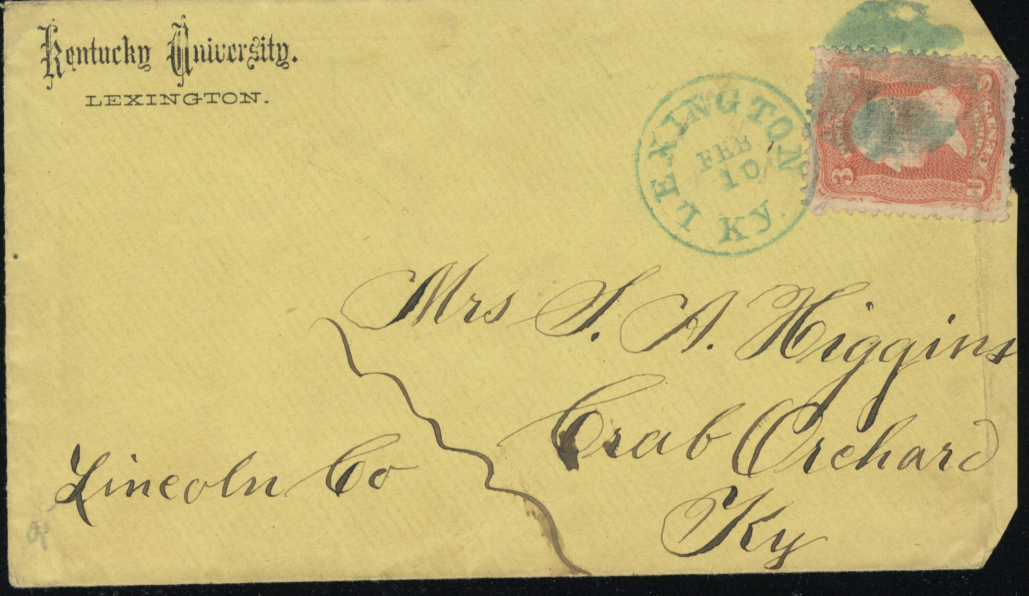 Kentucky University.
LEXINGTON.
LEXINGTON
FEB
10
KY.
3
CENTS
Mrs S. A. Higgins
Crab Orchard
Ky
Lincoln Co